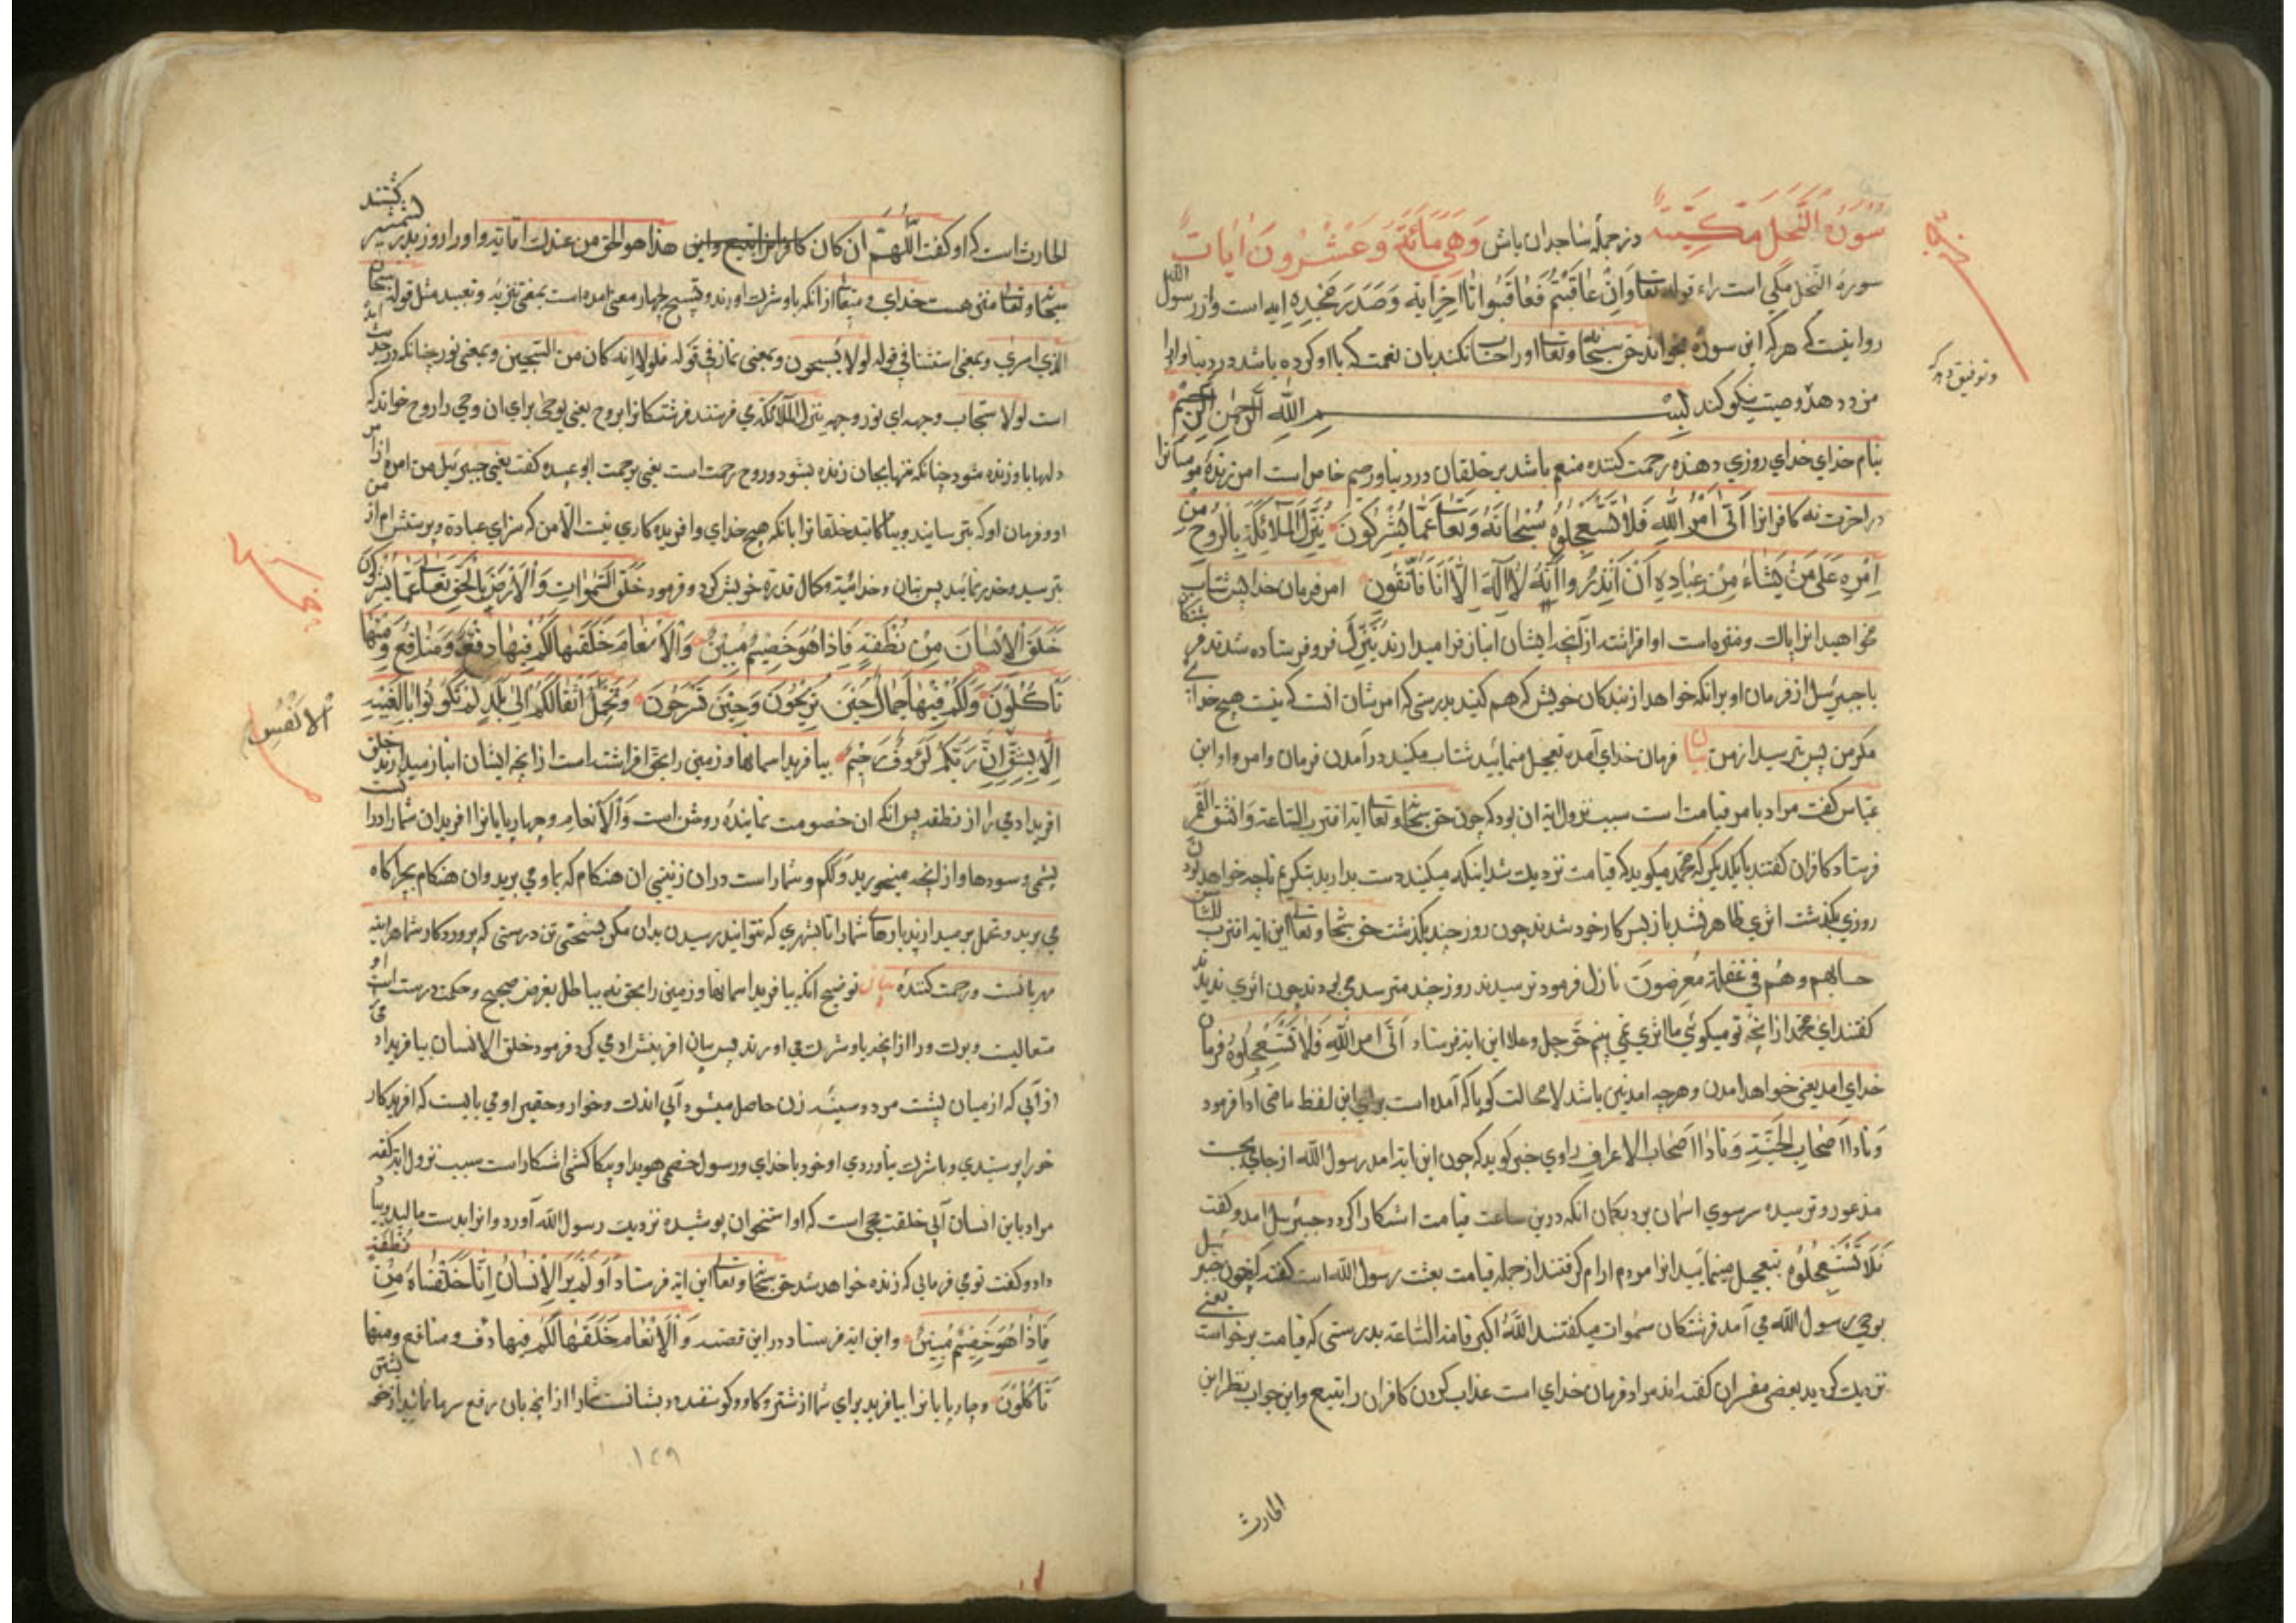 سُورَةُ النَّحْلِ مَكِّيَّة و از جمله ساجدان باش وَهِيَ مِائَةٌ وَعَشْرُونَ اٰيَات
سورة النحل مكي است قوله تعالى وَاِنْ عَاقَبْتُمْ فَعَاقِبُوا تا اخر ايه و صد ايه است و از رسول الله
روايتست كه هركه اين سوره بخواند حق سبحانه وتعالى او را حساب نكند بان نعمت كه با او كرده باشد در دنيا و او را
مزد دهد وصيت نيكو كند بِسْمِ اللهِ الرَّحْمٰنِ الرَّحِيْمِ
و توفيق دهد كه
بنام خداي خداي روزي دهنده رحمت كننده منعم باشد بر خلقان در دنيا و رحيم خاص است امرزنده مومنانرا
در اخرت نه كافرانرا اَتٰى اَمْرُ اللهِ فَلَا تَسْتَعْجِلُوْهُ سُبْحَانَهُ وَتَعَالٰى عَمَّا يُشْرِكُونَ يُنَزِّلُ الْمَلَائِكَةَ بِالرُّوْحِ مِنْ
اَمْرِهِ عَلٰى مَنْ يَشَاءُ مِنْ عِبَادِهِ اَنْ اَنْذِرُوا اَنَّهُ لَا اِلٰهَ اِلَّا اَنَا فَاتَّقُونِ امر فرمان خدا پس شتاب
مخواهيد انرا پاكست و منزه است او افراشته از آنچه ايشان انباز فراميدارند يُنَزِّلُ فرو فرستاده شدند فرشتكان
با جبرئيل از فرمان او برانكه خواهد از بندكان خويش كه هم كنيد بدرستي كه امر شان انست كه نيست هيچ خدا
مكر من پس بترسيد از من بيان فرمان خداي آمد تعجيل منمائيد شتاب مكنيد در آمدن فرمان و امر او ابن
عباس كفت مراد با مر قيامت است سبب نزول ايه ان بود كه چون حق سبحانه وتعالى ايه اقتربت الساعة وانشق القمر
فرستاد كافران كفتند با يكديكر كه محمد ميكويد كه قيامت نزديك شد اينكه ميكنيد دست بداريد بنكريم تا چه خواهد بودن
روزي بكذشت اثري ظاهر نشد باز بس كار خود شدند چون روز چند بكذشت حق سبحانه وتعالى اين ايه اقترب للناس
حسابهم وهم في غفلة معرضون نازل فرمود ترسيدند روز چند مترسد مي بودند چون اثري نديدند
كفتند اي محمد از انچه تو ميكوئي ما اثري نمي بينم حق جل و علا اين ايه فرستاد اَتٰى امر اللهِ فَلَا تَسْتَعْجِلُوْهُ فرمان
خداي امد يعني خواهد امدن و هرچه امدني باشد لا محالت كويا كه آمده است براي اين لفظ ماضي ادا فرمود
وَنَادٰا اَصْحَابُ الْجَنَّةِ وَنَادٰا اَصْحَابُ الاعراف راوي خبر كويد كه چون اين ايه امد رسول الله از جاي بجست
مذعور و ترسيده سر سوي اسمان برد بكمان انكه درين ساعت قيامت اشكارا كرد جبرئيل امد و كفت
فَلَا تَسْتَعْجِلُوْهُ تعجيل منمائيد انرا مردم ارام كرفتند از جمله قيامت بعث رسول الله است كفته اند چون جبرئيل
بوحي رسول الله مي آمد فرشتكان سموات ميكفتند اللهُ اكبر قامت الساعة بدرستي كه قيامت برخواست يعني
نزديك كرديد بعضي مفسران كفته اند مراد فرمان خداي است عذاب كردن كافران را بتيغ و اين جواب نظر ابن
الحارث
الحارث است كه او كفت اَللّٰهُمَّ ان كان هذا هو الحق من عندك اما تيه و او را روز بدر بشمشير كشتند
سبحانه وتعالى منزه هست خداي و متعالى از انكه با و شرك اورند و تسبيح چهار معني امده است بمعني تنزيه و تعبيد مثل قوله سبحان
الذي اسرى و بمعني استثنا في قوله لولا تسبحون و بمعني نماز في قوله فلولا انه كان من المسبحين و بمعني نور چنانكه در حديث
است لولا سبحات وجهه اي نور وجهه ينزل الملائكة مي فرستد فرشتكانرا بروح يعني بوحي براي ان وحي را روح خواند كه
دلها باو زنده شود چنانكه تنها بجان زنده بشود و روح رحمت است يعني برحمت ابو عبيده كفت يعني جبرئيل من امره از امر
او و فرمان او كه بترسانيد و بياكاهانيد خلقانرا بانكه هيچ خداي و افريدكاري نيست الا من كه سزاي عبادة و پرستش ام از من
بترسيد و حذر نمائيد پس بيان وحدانية و كمال قدرت خويش كرد و فرمود خَلَقَ السَّمٰوَاتِ وَالْاَرْضَ بِالْحَقِّ تَعَالٰى عَمَّا يُشْرِكُونَ
خَلَقَ الْاِنْسَانَ مِنْ نُطْفَةٍ فَاِذَا هُوَ خَصِيْمٌ مُبِيْنٌ وَالْاَنْعَامَ خَلَقَهَا لَكُمْ فِيْهَا دِفْءٌ وَمَنَافِعُ وَمِنْهَا
تَاْكُلُونَ وَلَكُمْ فِيْهَا جَمَالٌ حِيْنَ تُرِيْحُونَ وَحِيْنَ تَسْرَحُونَ وَتَحْمِلُ اَثْقَالَكُمْ اِلٰى بَلَدٍ لَمْ تَكُوْنُوا بَالِغِيْهِ
اِلَّا بِشِقِّ اِنَّ رَبَّكُمْ لَرَؤُفٌ رَحِيْمٌ بيافريد اسمانها و زمين را بحق افراشته است از انچه ايشان انباز ميدارند خلق
الْاَنْفُسِ
افريد ادمي را از نطفه پس انكه ان خصومت نماينده روشن است وَالْاَنْعَامَ و چهارپايانرا افريد ان شما را درا
پشمي و سودها و از انچه ميخوريد وَلَكُمْ و شما راست دران زينتي ان هنكام كه باوي بريد و ان هنكام بچراكاه
مي بريد و تحمل بر ميدارند بارهاي شما را تا بشهري كه نتوانيد رسيدن بدان مكر بسختي تن درستي كه پروردكار شما هراينه
مهربانست و رحمت كننده بيان توضيح انكه بيافريد اسمانها و زمين را بحق نه بباطل بغرض صحيح و حكمت درست است او
متعاليست و برتر ورا از انچه باو شرك مي اورند پس بيان افرينش ادمي كرد فرمود خلق الانسان بيافريد ادمي
از آبي كه از ميان پشت مرد و سينه زن حاصل ميشود آبي اندك و خوار و حقير او مي بايست كه افريدكار
خود را پرستيدي و با شرك نياوردي او خود با خداي و رسول خصمي هويدا و پيكار كشي اشكارا است سبب نزول ايه كفته
مراد باين انسان آبي خلقت جمحي است كه او استخوان پوسيده نزديك رسول الله آورد و انرا بدست ماليد و بباد
داد و كفت تو مي فرمائي كه زنده خواهد شد حق سبحانه وتعالى اين ايه فرستاد اَوَلَمْ يَرَ الْاِنْسَانُ اِنَّا خَلَقْنَاهُ مِنْ نُطْفَةٍ
فَاِذَا هُوَ خَصِيْمٌ مُبِيْنٌ و اين ايه فرستاد در اين قصه وَالْاَنْعَامَ خَلَقَهَا لَكُمْ فِيْهَا دفء و منافع و منها
تَاْكُلُونَ و چارپايانرا بيافريد براي شما از شتر و كاو و كوسفند
١٢٩